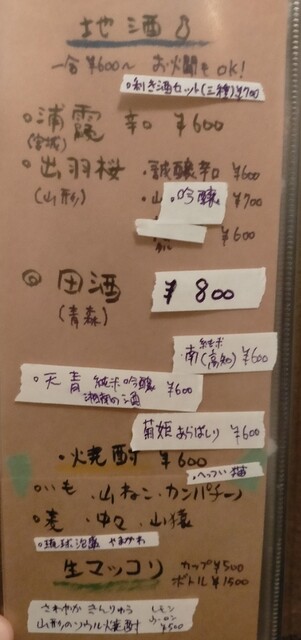 地酒
一合¥600〜 お燗もOK!
・利き酒セット(三種)¥700
・浦霞 辛口 ¥600
(宮城)
・出羽桜 ・誠醸辛口 ¥600
(山形) ・山 ・吟醸 ¥700
¥600
◎ 田酒 ¥800
(青森)
・南 純米(高知) ¥600
・天青 純米吟醸 ¥600
湘南の酒
菊姫 あらばしり ¥600
・焼酎 ¥600
・へっつい猫
・いも ・山ねこ・カンパチ
・麦 ・中々・山猿
・琉球泡盛 やまかわ
生マッコリ カップ¥500
ボトル¥1500
さわやか きんりゅう レモン
山形のソウル焼酎 ウーロン
¥500